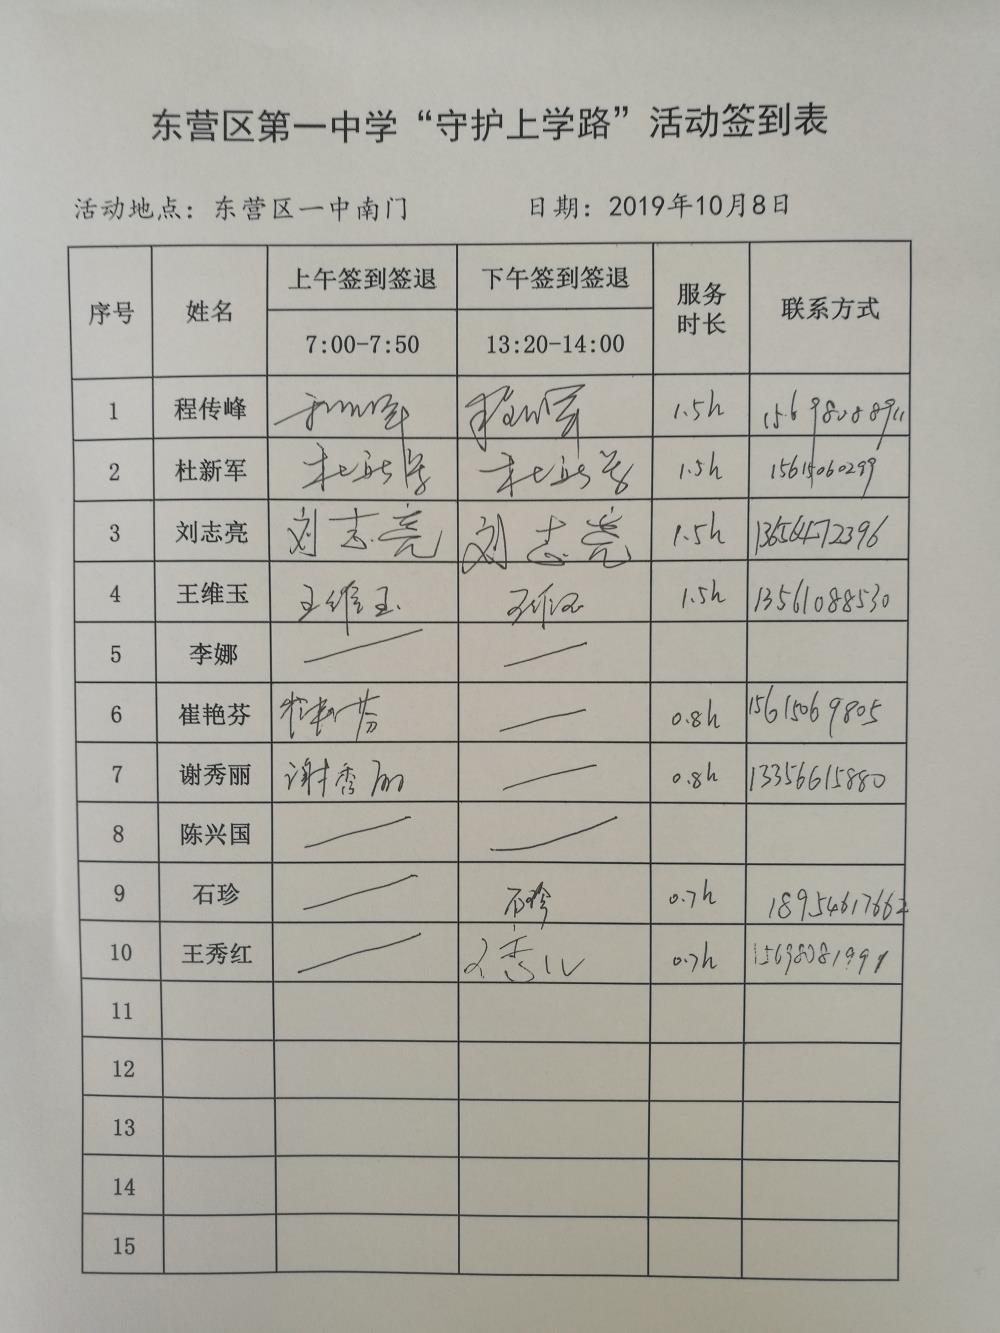 东营区第一中学“守护上学路”活动签到表
活动地点：东营区一中南门 日期：2019年10月8日
序号 姓名 上午签到签退 下午签到签退 服务时长 联系方式
7:00-7:50 13:20-14:00
1 程传峰 1.5h 15698088911
2 杜新军 杜新军 杜新军 1.5h 15615060299
3 刘志亮 刘志亮 刘志亮 1.5h 13656472396
4 王维玉 王维玉 王维玉 1.5h 13561088530
5 李娜 — —
6 崔艳芬 崔艳芬 — 0.8h 15615069805
7 谢秀丽 谢秀丽 — 0.8h 13356615880
8 陈兴国 — —
9 石珍 — 石珍 0.7h 18954617662
10 王秀红 — 王秀红 0.7h 15698081991
11
12
13
14
15